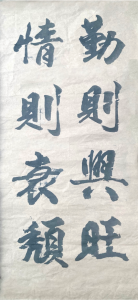 勤則興旺
情則衰頹